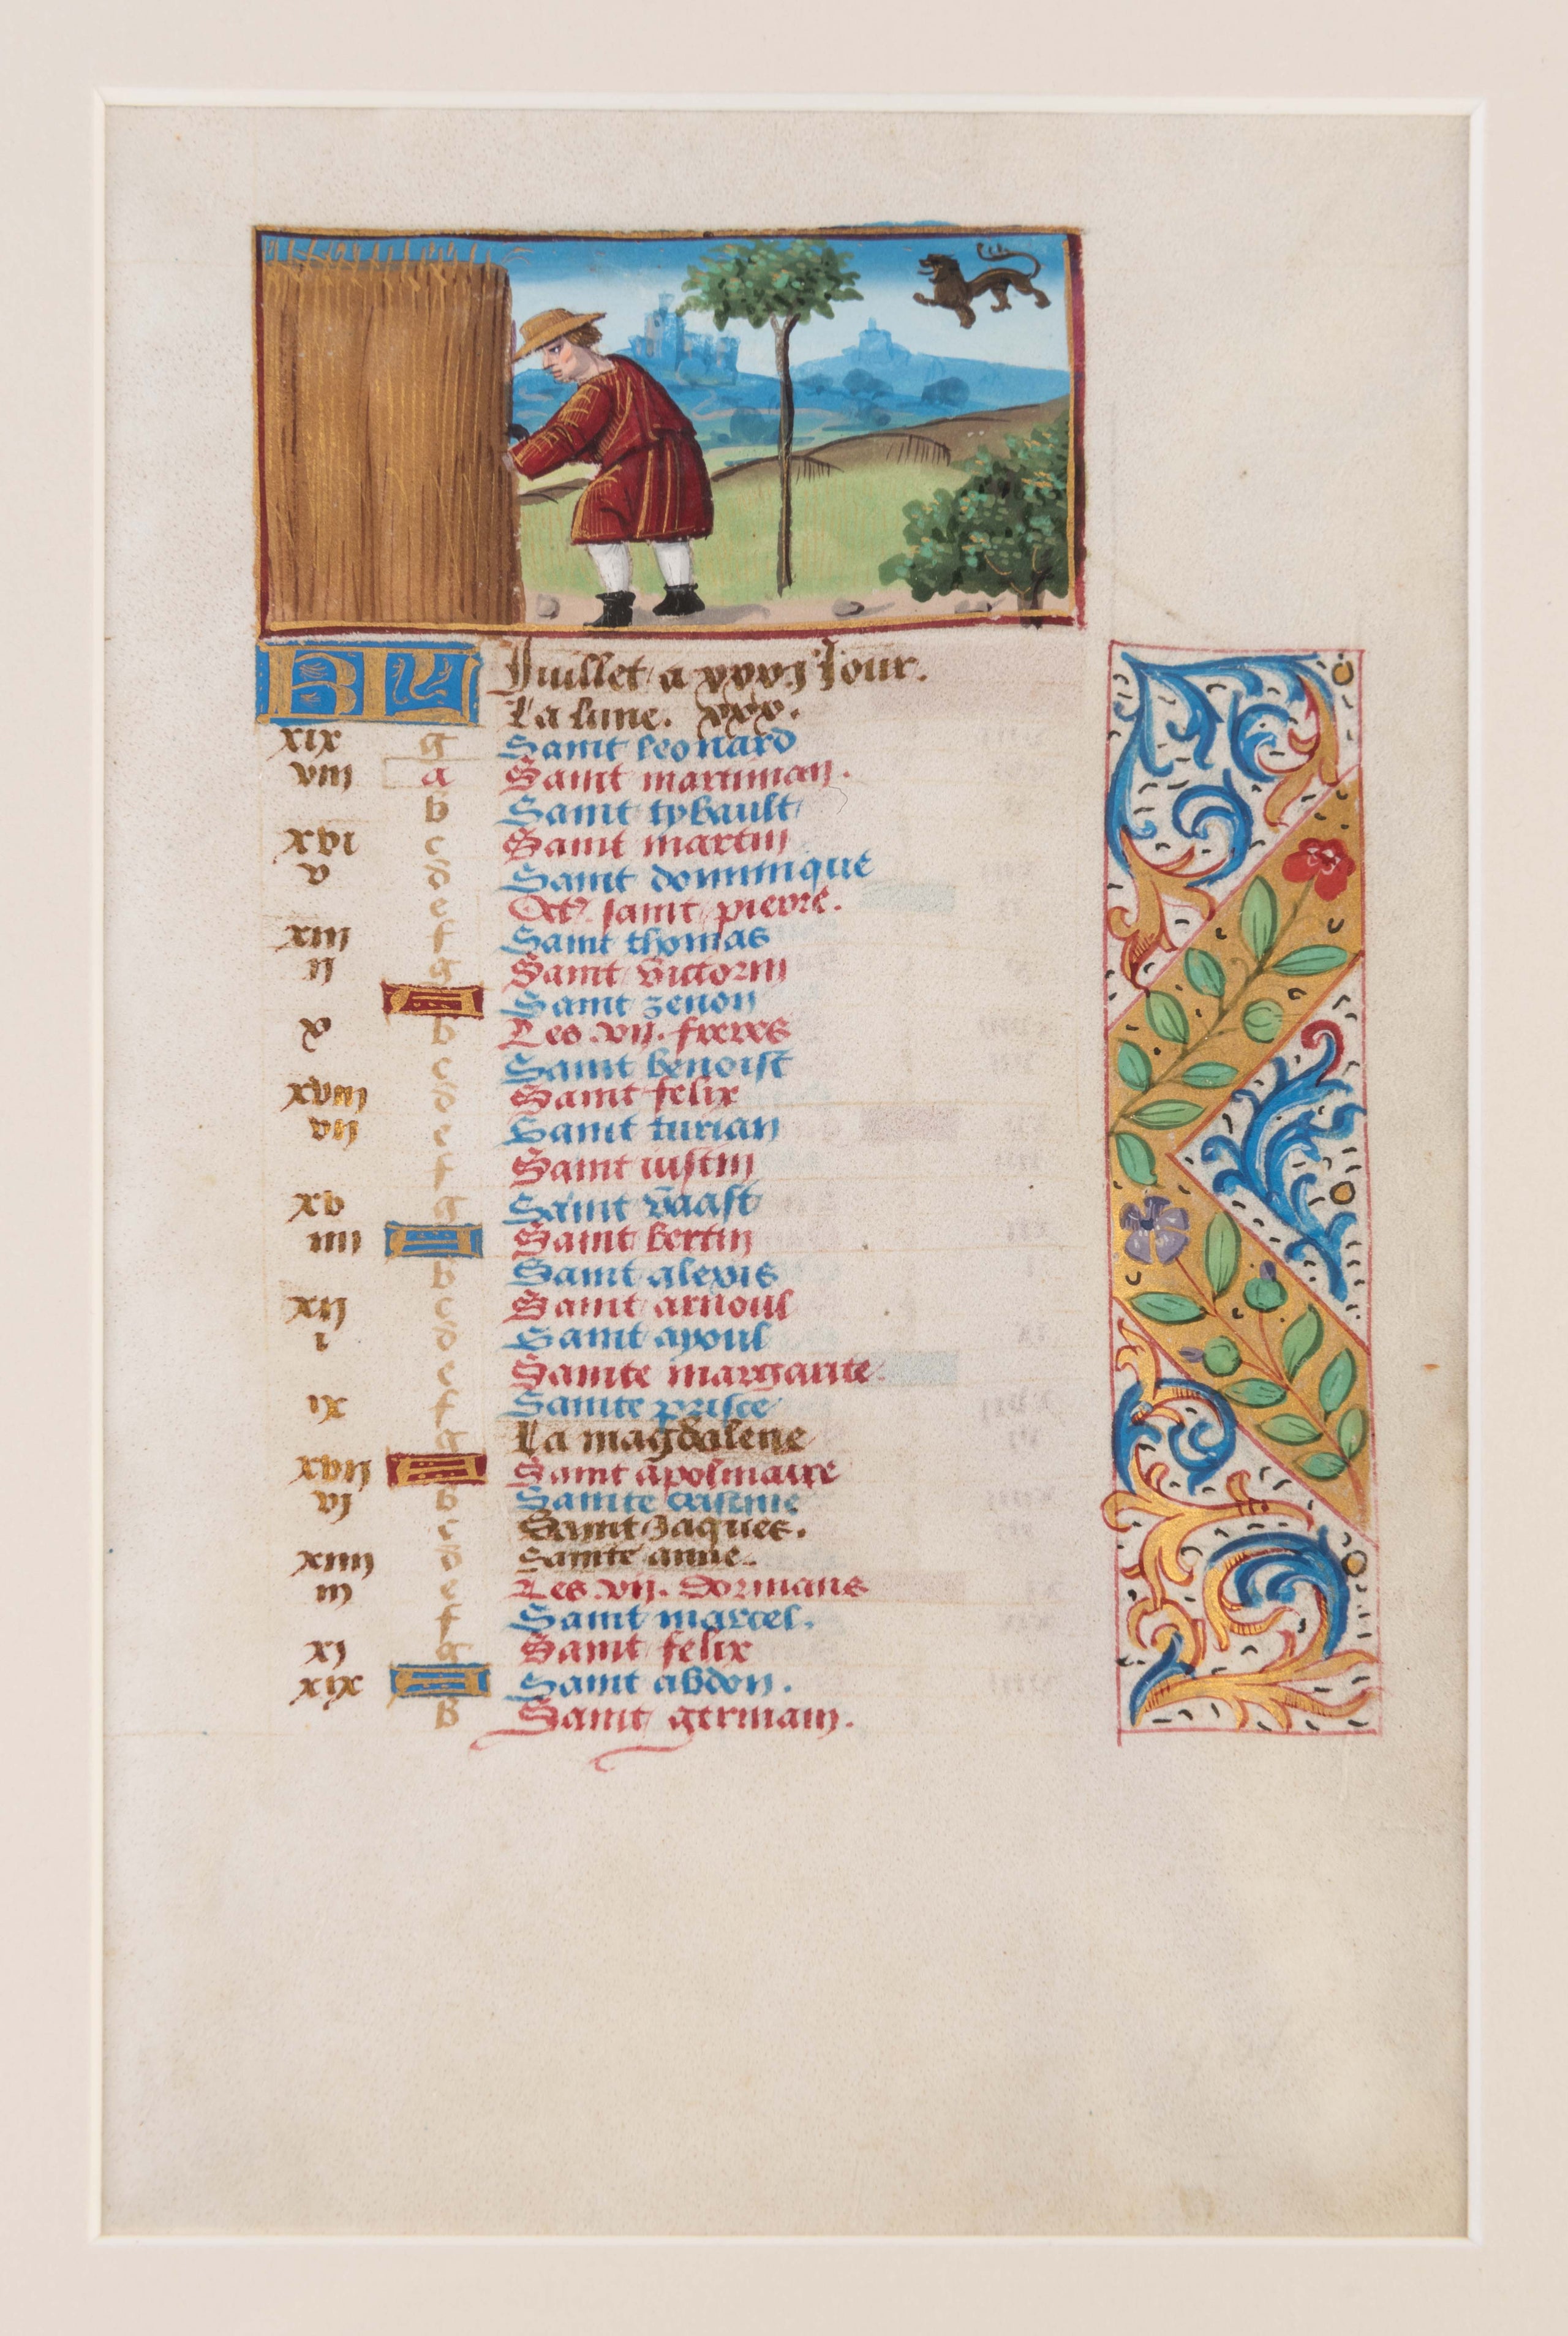 KL Juillet a xxxj Jour.
La lune. xxx.
xix g Saint leonard
viii a Saint martinian.
b Saint tybault
xvi c Saint martin
v d Saint dominique
e Oct. saint pierre.
xiii f Saint thomas
ii g Saint victorin
A Saint zenon
x b Les vii. freres
c Saint benoist
xviii d Saint felix
vii e Saint turian
f Saint iustin
xv g Saint vaast
iiii A Saint bertin
b Saint alexis
xii c Saint arnoul
i d Saint ayoul
e Sainte margarite
ix f Sainte prisce
g La magdalene
xvii A Saint apolinaire
vi b Sainte cristine
c Saint Jaques.
xiiii d Sainte anne.
iii e Les vii. dormans
f Saint marcel.
xi g Saint felix
xix A Saint abdon.
b Saint germain.